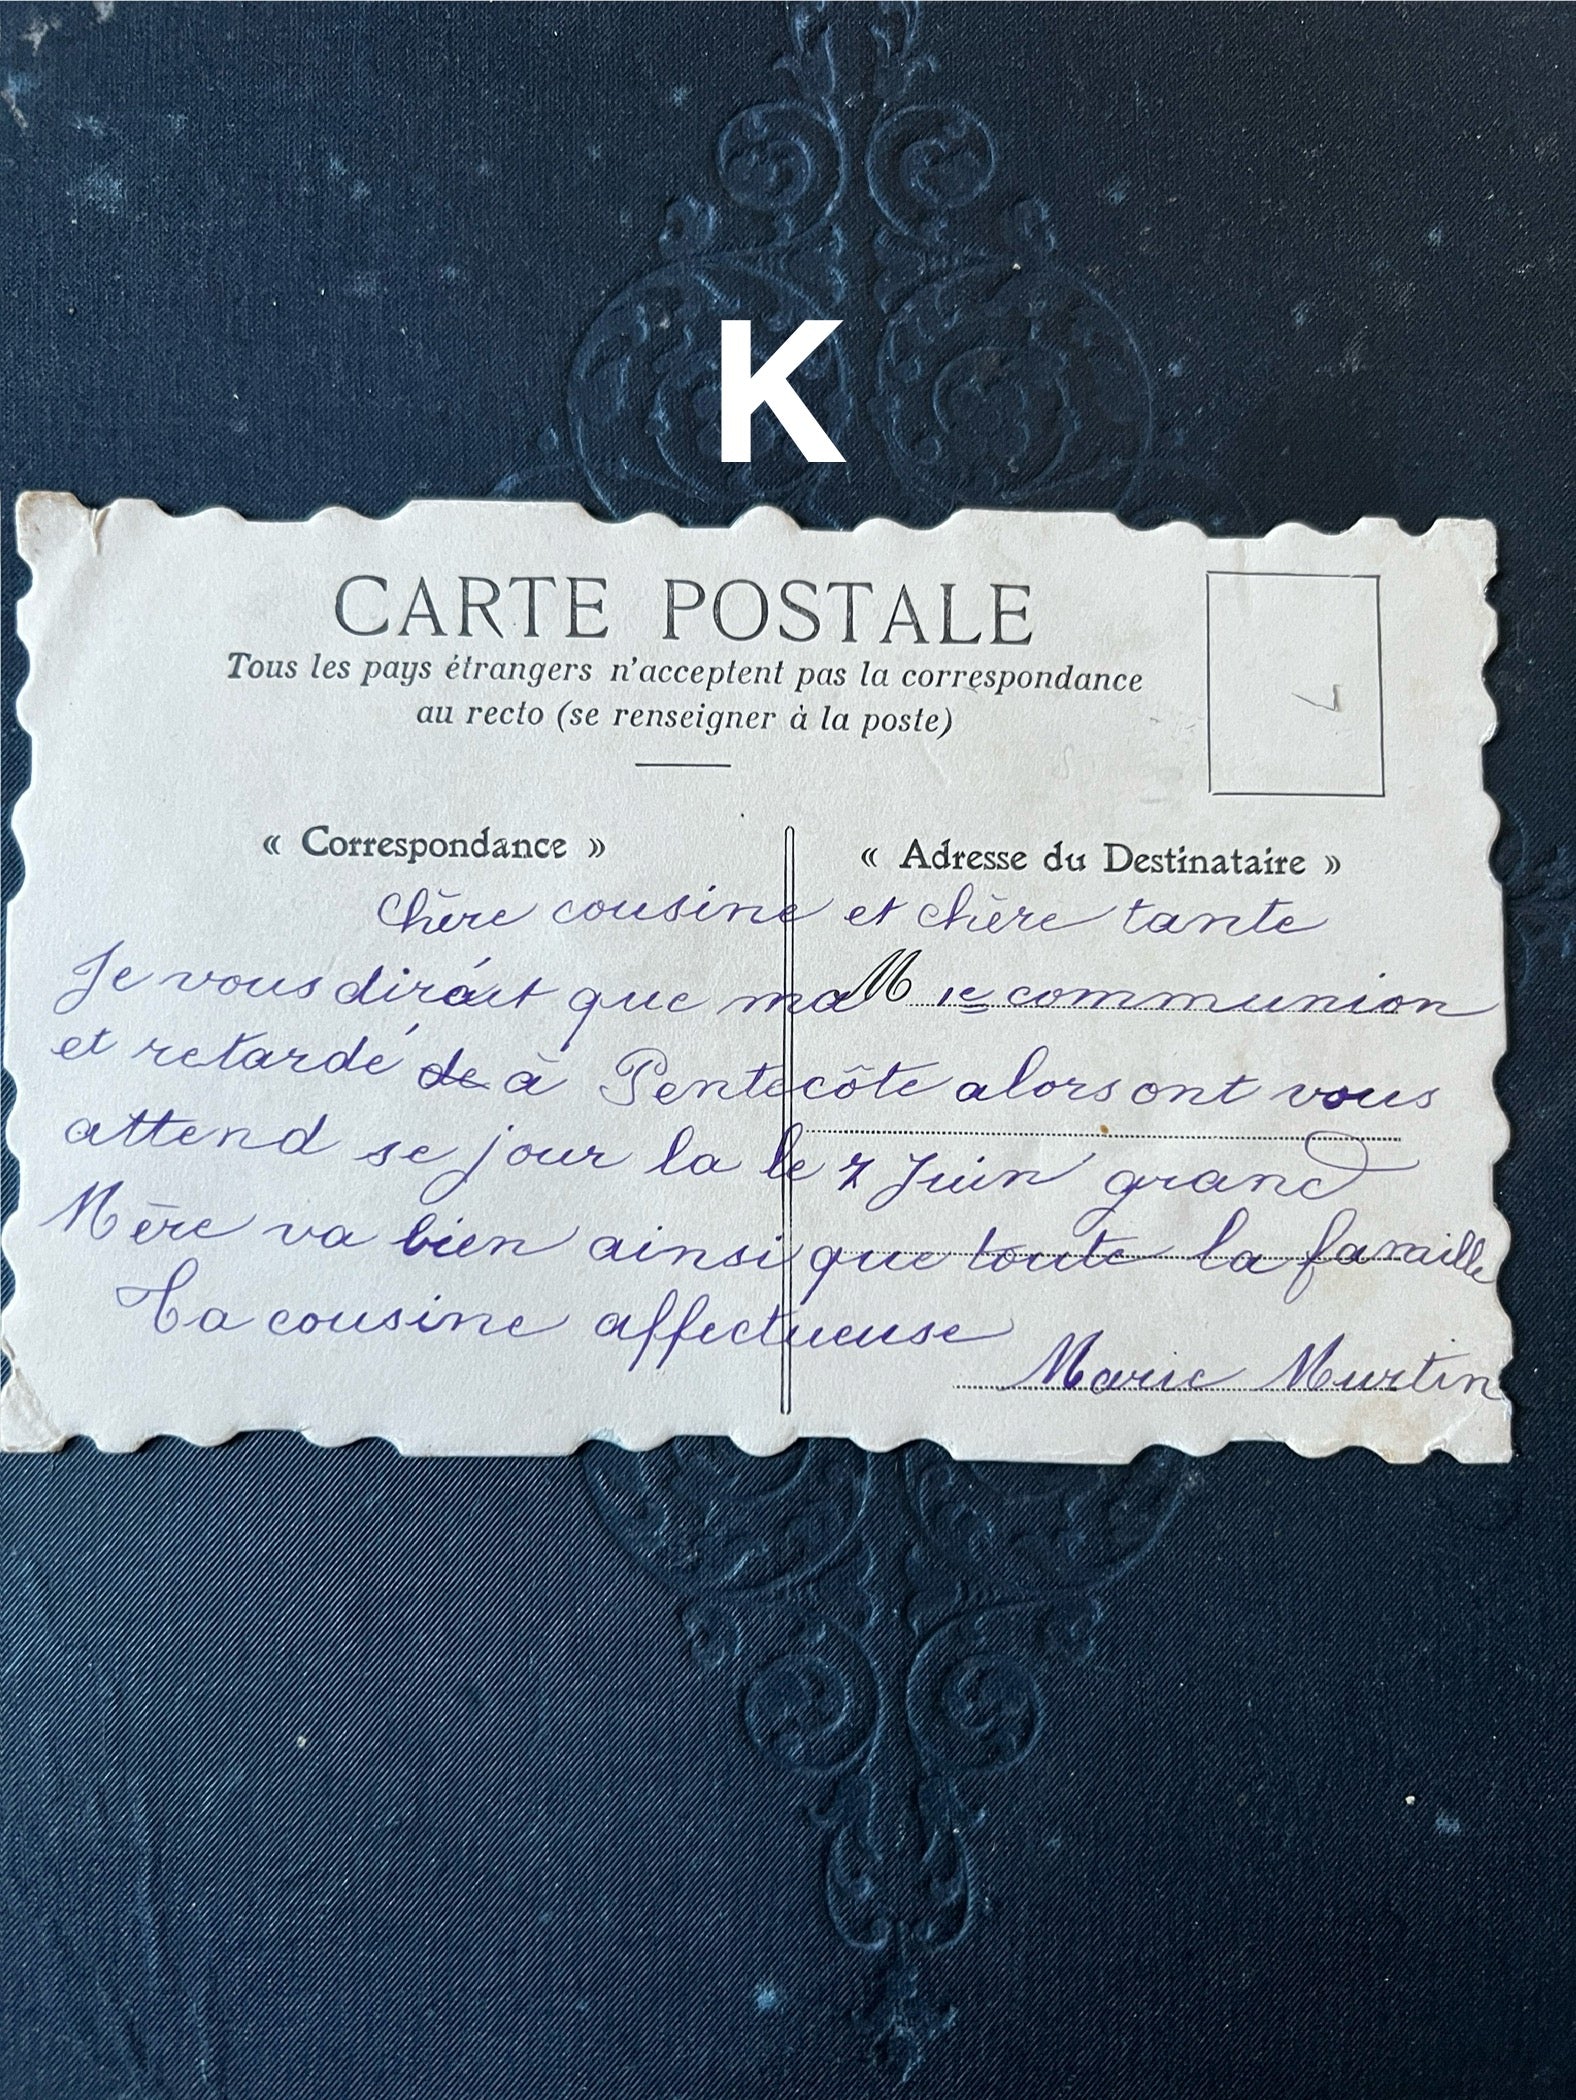 K
CARTE POSTALE
Tous les pays étrangers n'acceptent pas la correspondance
au recto (se renseigner à la poste)
« Correspondance »
« Adresse du Destinataire »
Chère cousine et chère tante
Je vous dirait que ma M 1e communion
et retardé de à Pentecôte alors ont vous
attend se jour la le 7 Juin grand
Mère va bien ainsi que toute la famille
Ta cousine affectueuse
Marie Murtin